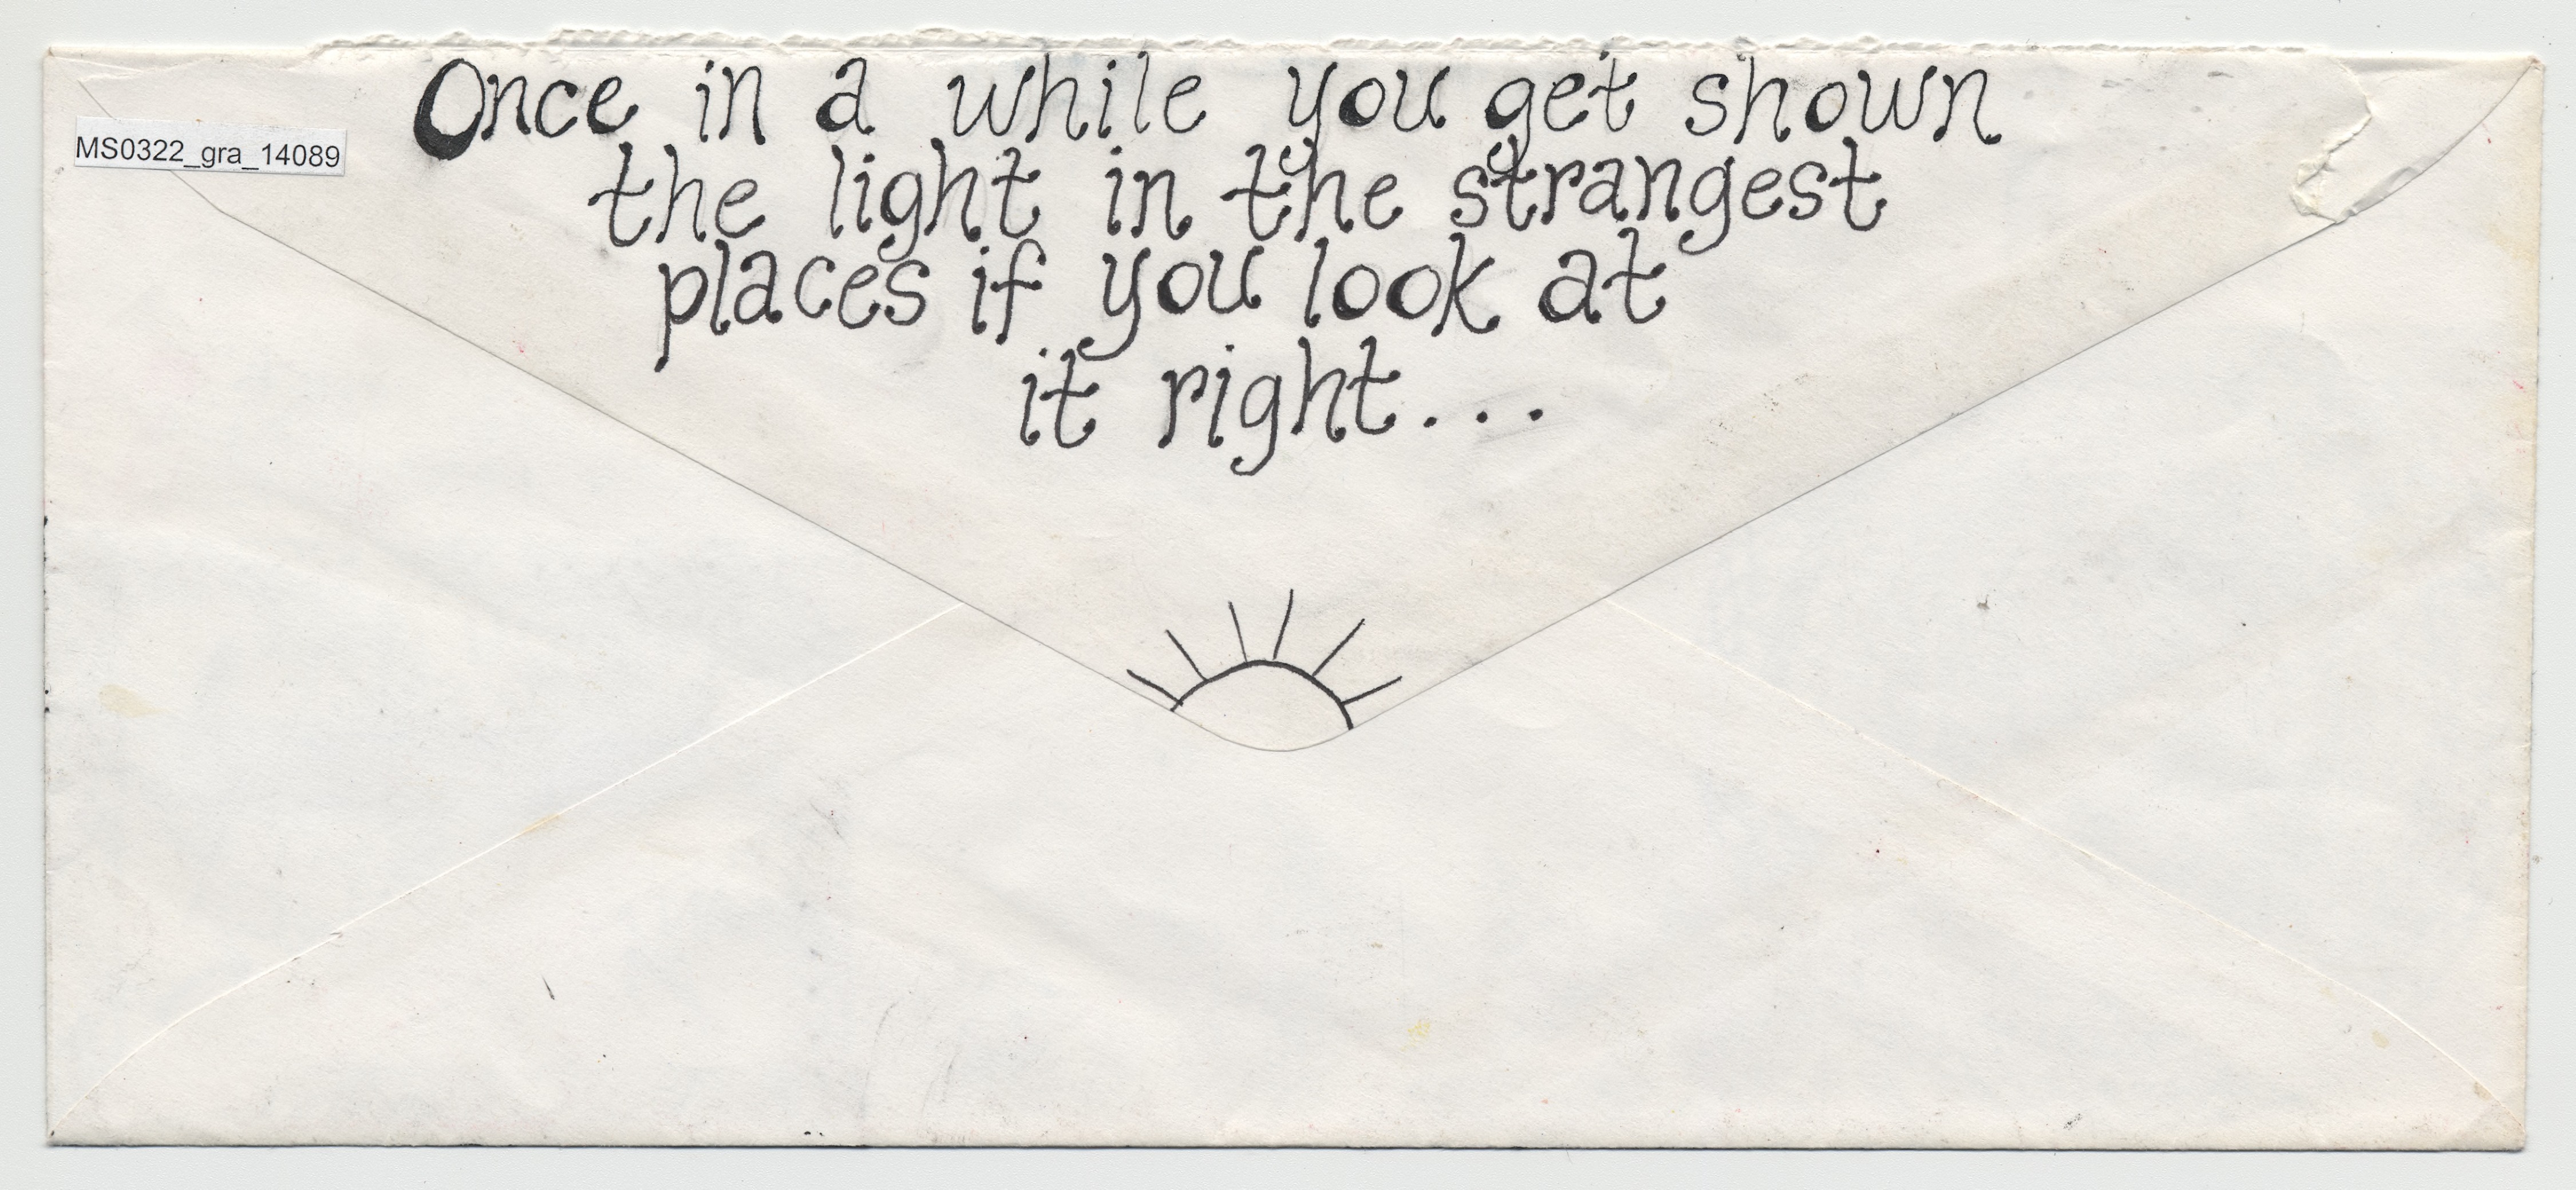 Once in a while you get shown
MS0322_gra_14089
the light in the strangest
places if you look at
it right...